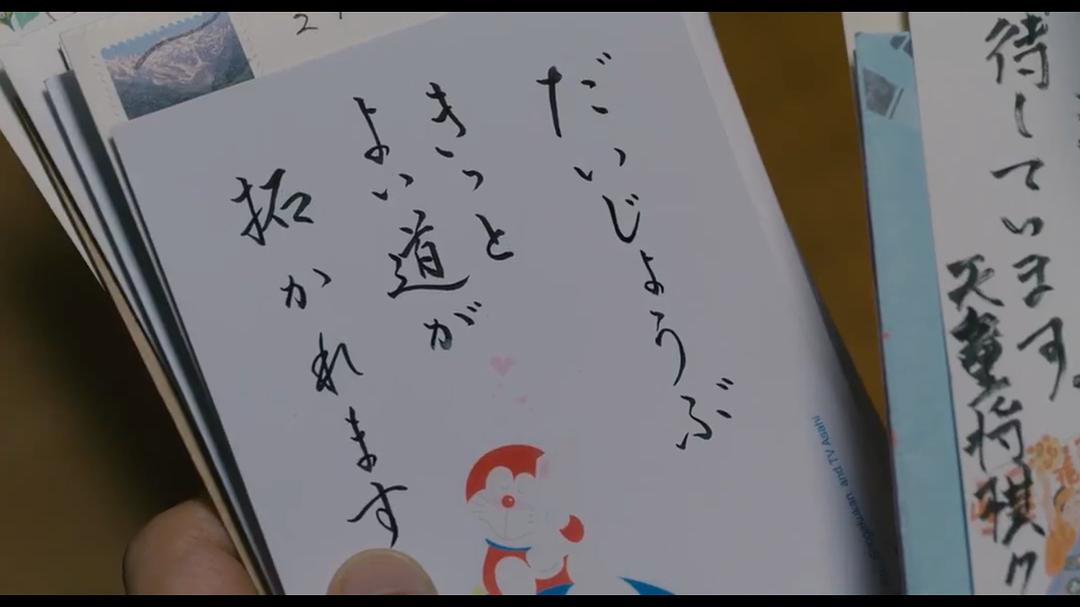 だいじょうぶ
きっと
よい道が
拓かれます
待しています。
天童将棋ク
and TV Asahi
2